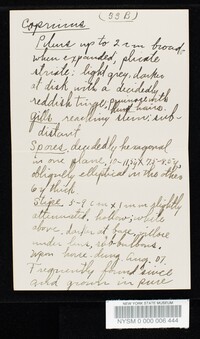 (53B)
Coprinus
Pileus up to 2 cm broad
when expanded, plicate
striate; light grey, darker
at disk with a decidedly
reddish tinge; pruinose with
hairs.
Gills reaching stem; sub-
distant.
Spores decidedly hexagonal
in one plane, 10-11.5 X 7.5-8.5 µ,
obliquely elliptical in the other
6 µ thick
Stipe 5-7 cm X 1 mm slightly
attenuated, hollow; white
above, darker at base, villose
under lens, sub-bulbous.
Upon horse dung Aug. 07.
Frequently found since
and grown in pure
NEW YORK STATE MUSEUM
NYSM 0 000,006,444